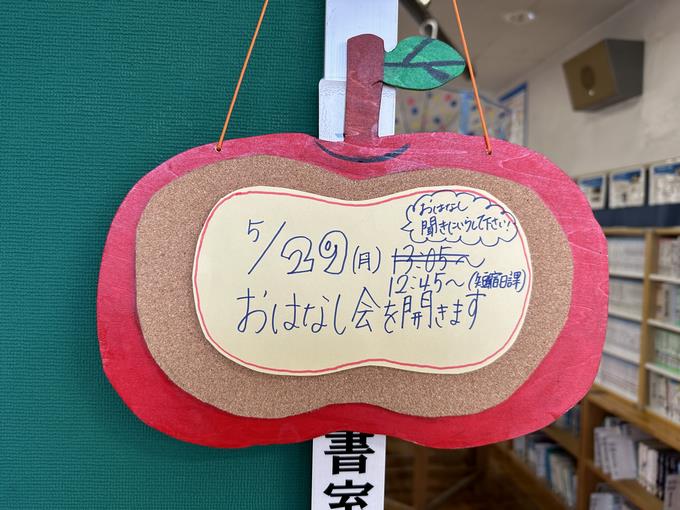 おはなし
聞きにいらして下さい!
5/29(月) 13:05〜
12:45〜(短縮日課)
おはなし会を開きます
書室